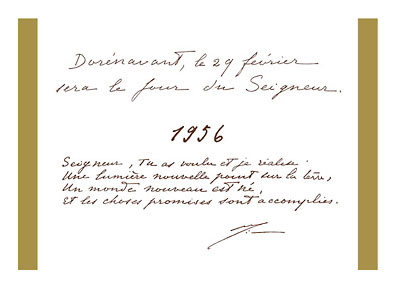 Dorénavant, le 29 février
sera le Jour du Seigneur.
1956
Seigneur, Tu as voulu et je réalise :
Une lumière nouvelle point sur la terre,
Un monde nouveau est né,
Et les choses promises sont accomplies.